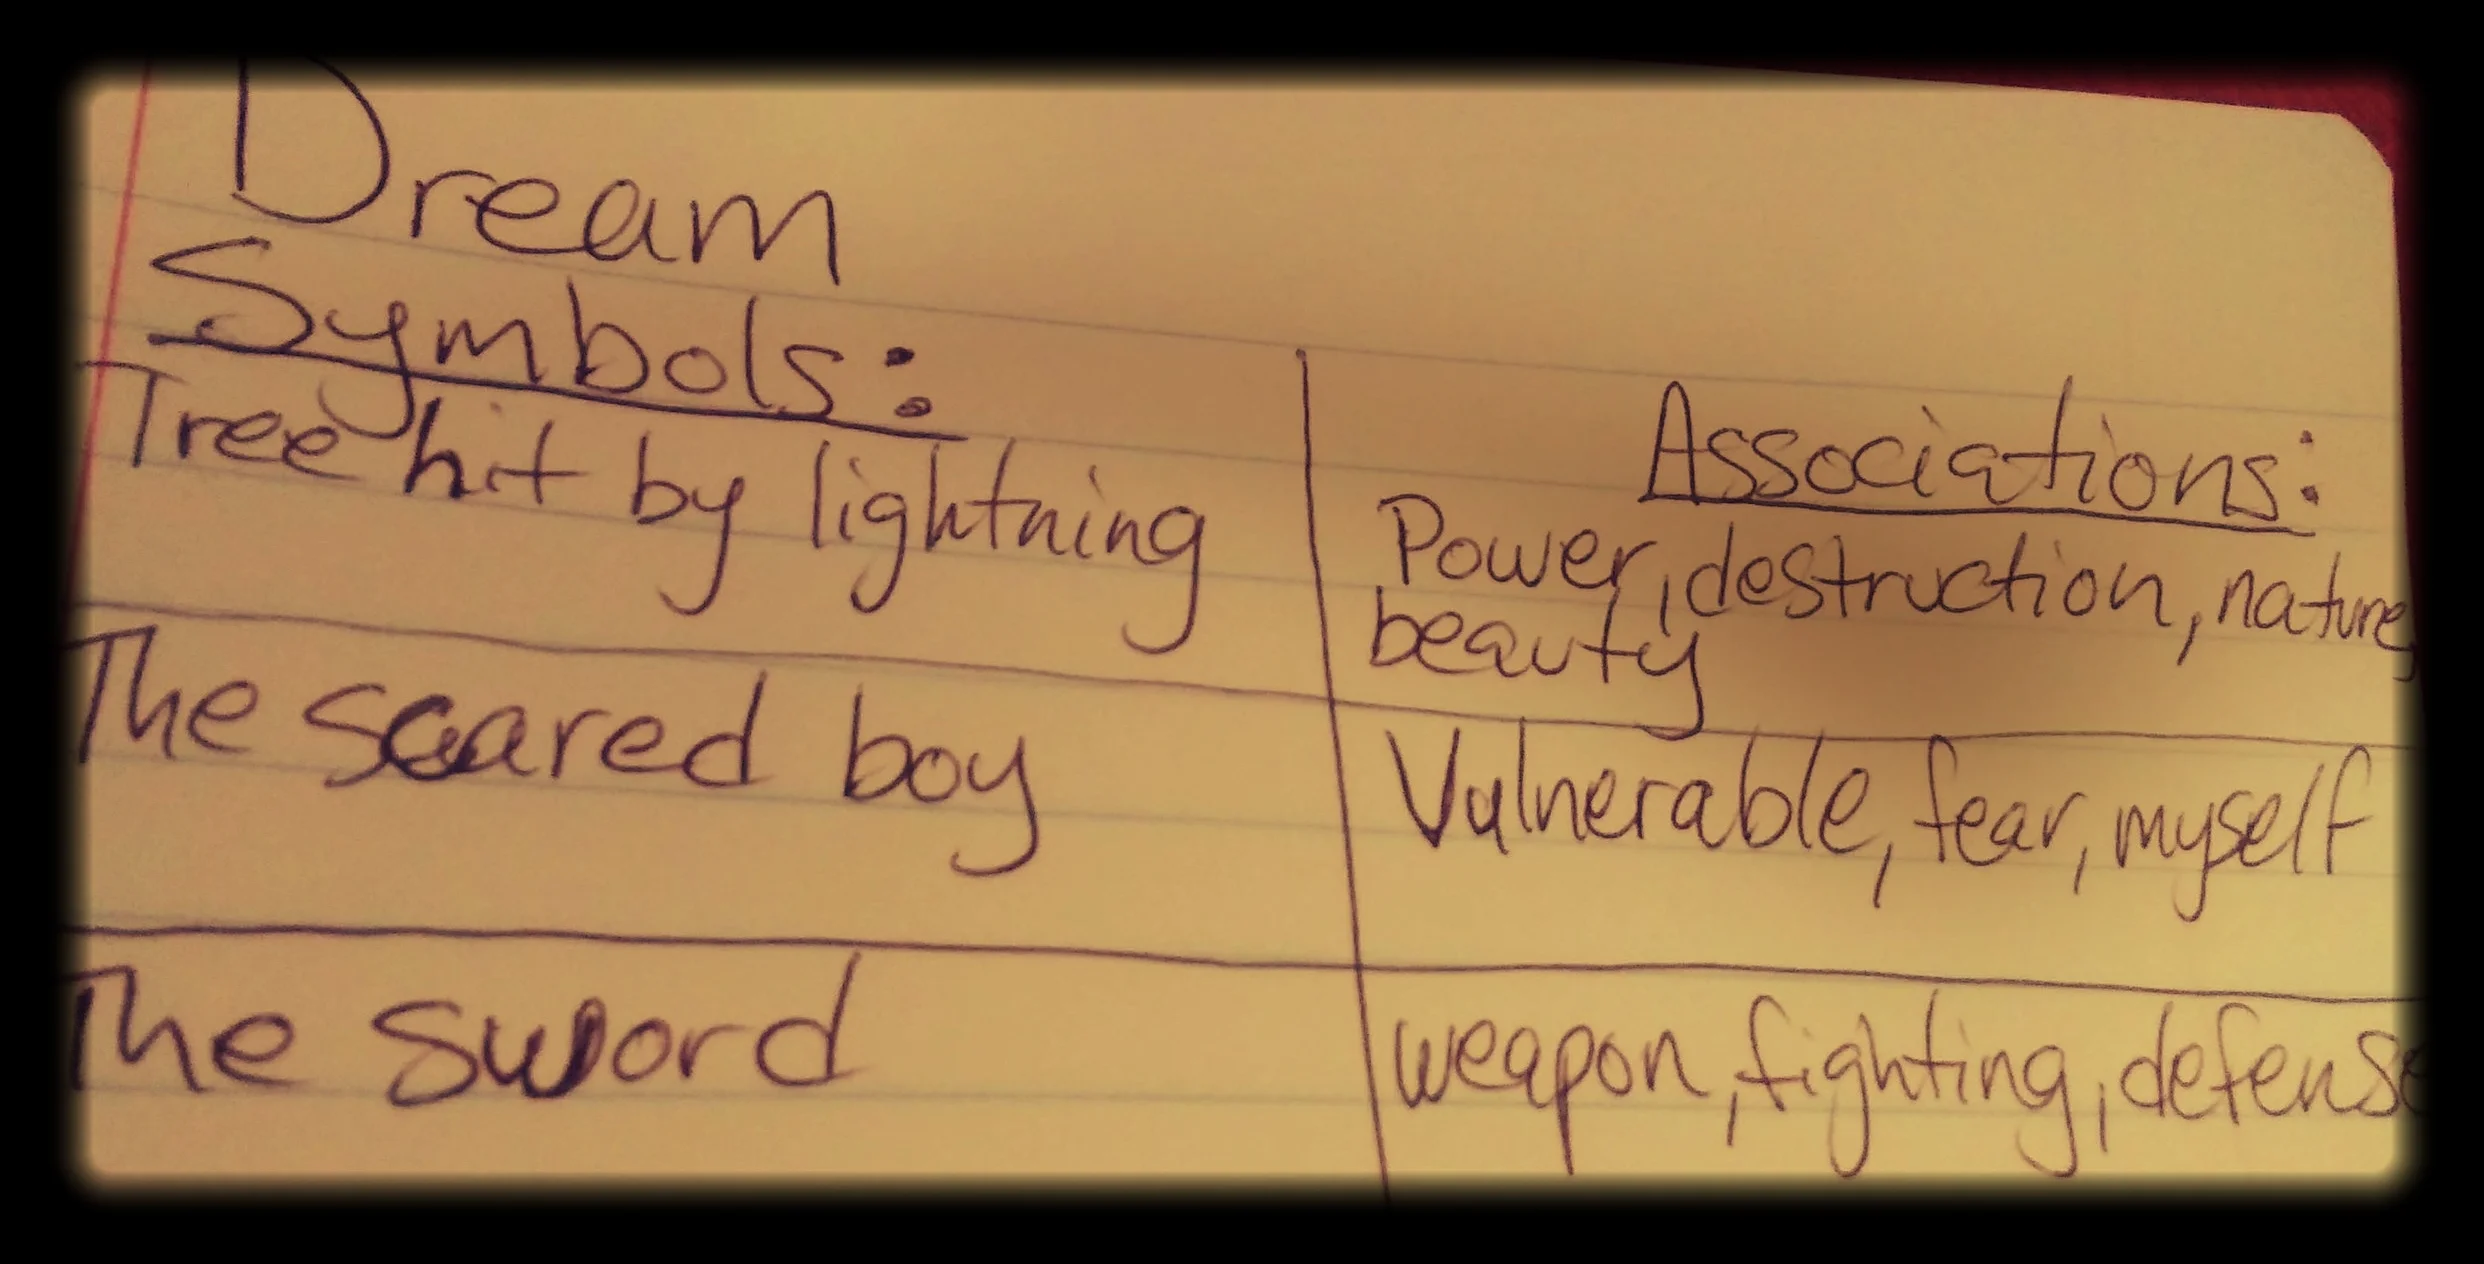 Dream
Symbols:
Associations:
Tree hit by lightning
Power, destruction, nature,
beauty
The scared boy
Vulnerable, fear, myself
The sword
weapon, fighting, defense